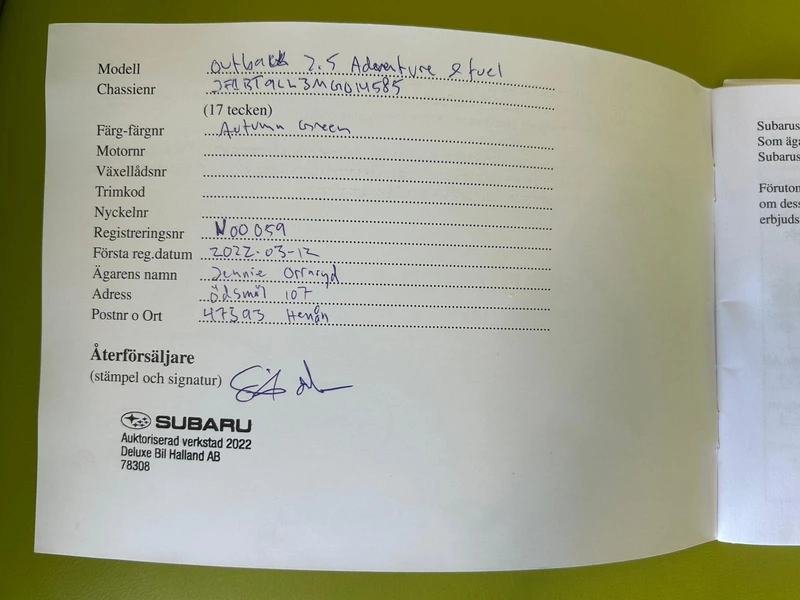 Modell Outback 2.5 Adventure efuel
Chassienr JF1BT9LL3MG014585
(17 tecken)
Färg-färgnr Autumn Green
Motornr
Växellådsnr
Trimkod
Nyckelnr
Registreringsnr N00059
Första reg.datum 2022-03-12
Ägarens namn Jennie
Adress Ödsmål 107
Postnr o Ort 47393 Henån
Återförsäljare
(stämpel och signatur)
SUBARU
Auktoriserad verkstad 2022
Deluxe Bil Halland AB
78308
Subarus
Som äga
Subarus
Förutom
om dess
erbjuds